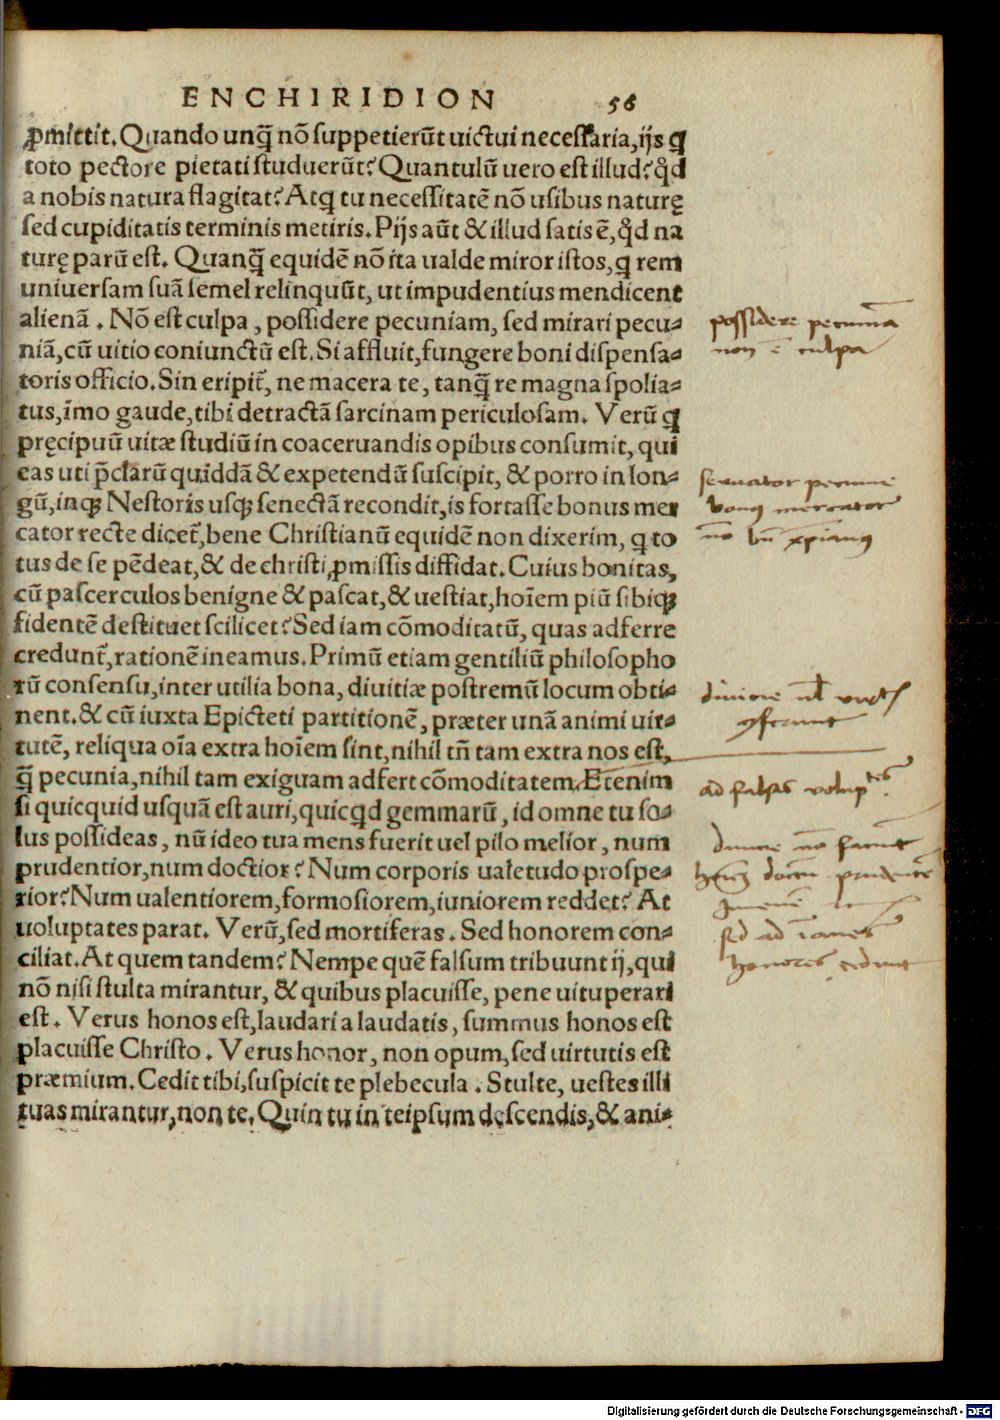 ENCHIRIDION 56
ꝓmittit. Quando unq̃ nõ suppetierũt uictui necessaria, ijs q̃
toto pectore pietati studuerũt? Quantulũ uero est illud? qd̃
a nobis natura flagitat? Atq̃ tu necessitatẽ nõ usibus naturę
sed cupiditatis terminis metiris. Pijs aũt & illud satis ẽ, qd̃ na
turę parũ est. Quanq̃ equidẽ nõ ita ualde miror istos, q̃ rem
uniuersam suã semel relinquũt, ut impudentius mendicent
alienã. Nõ est culpa, possidere pecuniam, sed mirari pecu-
niã, cũ uitio coniunctũ est. Si affluit, fungere boni dispensa-
toris officio. Sin eripit̃, ne macera te, tanq̃ re magna spolia-
tus, ĩmo gaude, tibi detractã sarcinam periculosam. Verũ q̃
pręcipuũ uitæ studiũ in coaceruandis opibus consumit, qui
eas uti p̃clarũ quiddã & expetendũ suscipit, & porro in lon-
gũ, inqꝫ Nestoris usqꝫ senectã recondit, is fortasse bonus mer
cator recte dicet̃, bene Christianũ equidẽ non dixerim, q̃ to
tus de se pẽdeat, & de christi ꝓmissis diffidat. Cuius bonitas,
cũ passerculos benigne & pascat, & uestiat, hoĩem piũ sibiqꝫ
fidentẽ destituet scilicet? Sed iam cõmoditatũ, quas adferre
credunt̃, rationẽ ineamus. Primũ etiam gentiliũ philosopho
rũ consensu, inter utilia bona, diuitiæ postremũ locum obti-
nent. & cũ iuxta Epicteti partitionẽ, præter unã animi uir-
tutẽ, reliqua oĩa extra hoĩem sint, nihil tñ tam extra nos est,
q̃ pecunia, nihil tam exiguam adfert cõmoditatem. Etenim
si quicquid usquã est auri, quicqd̃ gemmarũ, id omne tu so-
lus possideas, nũ ideo tua mens fuerit uel pilo melior, num
prudentior, num doctior? Num corporis ualetudo prospe-
rior? Num ualentiorem, formosiorem, iuniorem reddet? At
uoluptates parat. Verũ, sed mortiferas. Sed honorem con-
ciliat. At quem tandem? Nempe quẽ falsum tribuunt ij, qui
nõ nisi stulta mirantur, & quibus placuisse, pene uituperari
est. Verus honos est, laudari a laudatis, summus honos est
placuisse Christo. Verus honor, non opum, sed uirtutis est
præmium. Cedit tibi, suspicit te plebecula. Stulte, uestes illi
tuas mirantur, non te. Quin tu in teipsum descendis, & ani-
possidere pecuniã
non ẽ culpa
seruator pecunie
bonus mercator
nõ bñ xp̃ianus
ad falsas volup^tes.
honores
Digitalisierung gefördert durch die Deutsche Forschungsgemeinschaft - DFG